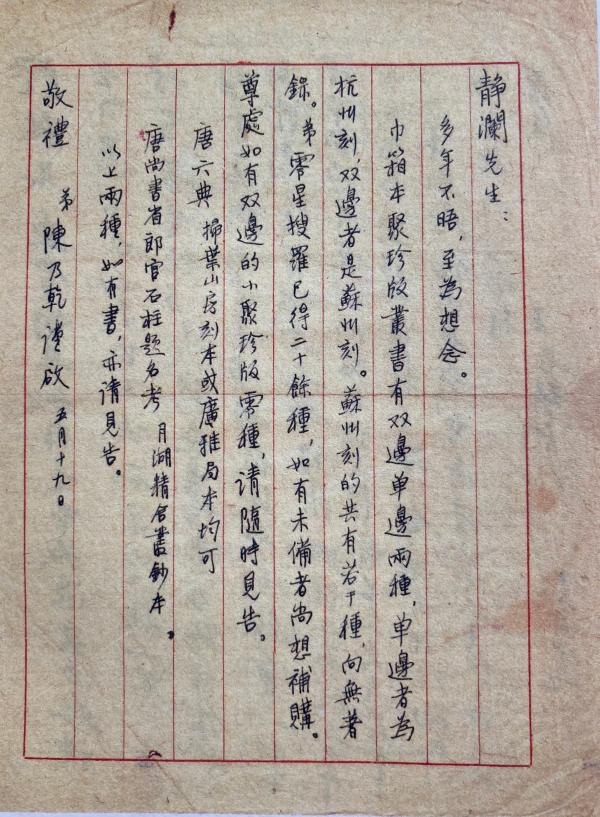 静瀾先生：
多年不晤，至為想念。
巾箱本聚珍版叢書有双邊单邊兩種，单邊者為
杭州刻，双邊者是蘇州刻。蘇州刻的共有若干種，向無著
錄。弟零星搜羅已得二十餘種，如有未備者尚想補購。
尊處如有双邊的小聚珍版零種，请隨時見告。
唐六典 掃葉山房刻本或廣雅局本均可
唐尚書省郎官石柱題名考 月湖精舍叢鈔本。
以上兩種，如有書，亦请見告。
敬禮
弟 陳乃乾謹啟 五月十九日